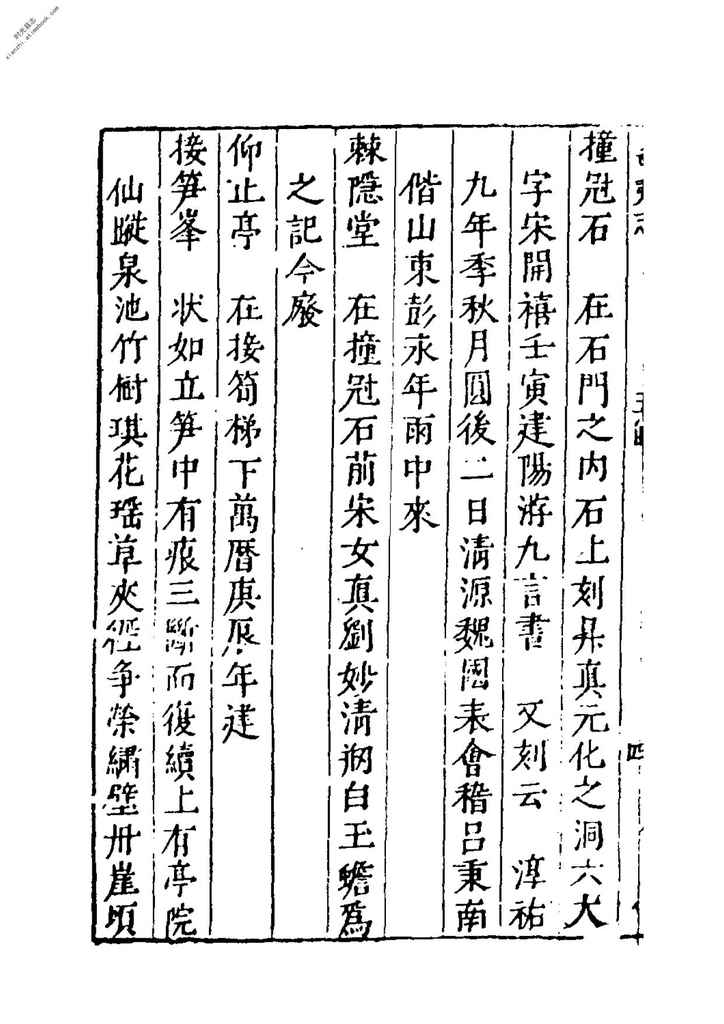 撞冠石　在石門之内石上刻昇真元化之洞六大
字宋開禧壬寅建陽游九言書　又刻云　淳祐
九年季秋月圓後二日清源魏國表會稽吕秉南
偕山東彭永年雨中來
棘隱堂　在撞冠石前宋女真劉妙清剏白玉蟾爲
之記今廢
仰止亭　在接笋梯下萬曆庚辰年建
接笋峯　狀如立笋中有痕三斷而復續上有亭院
仙蹤泉池竹樹琪花瑶草夾徑爭榮繡壁丹崖頃
时光县志
xianzhi.atimebook.com